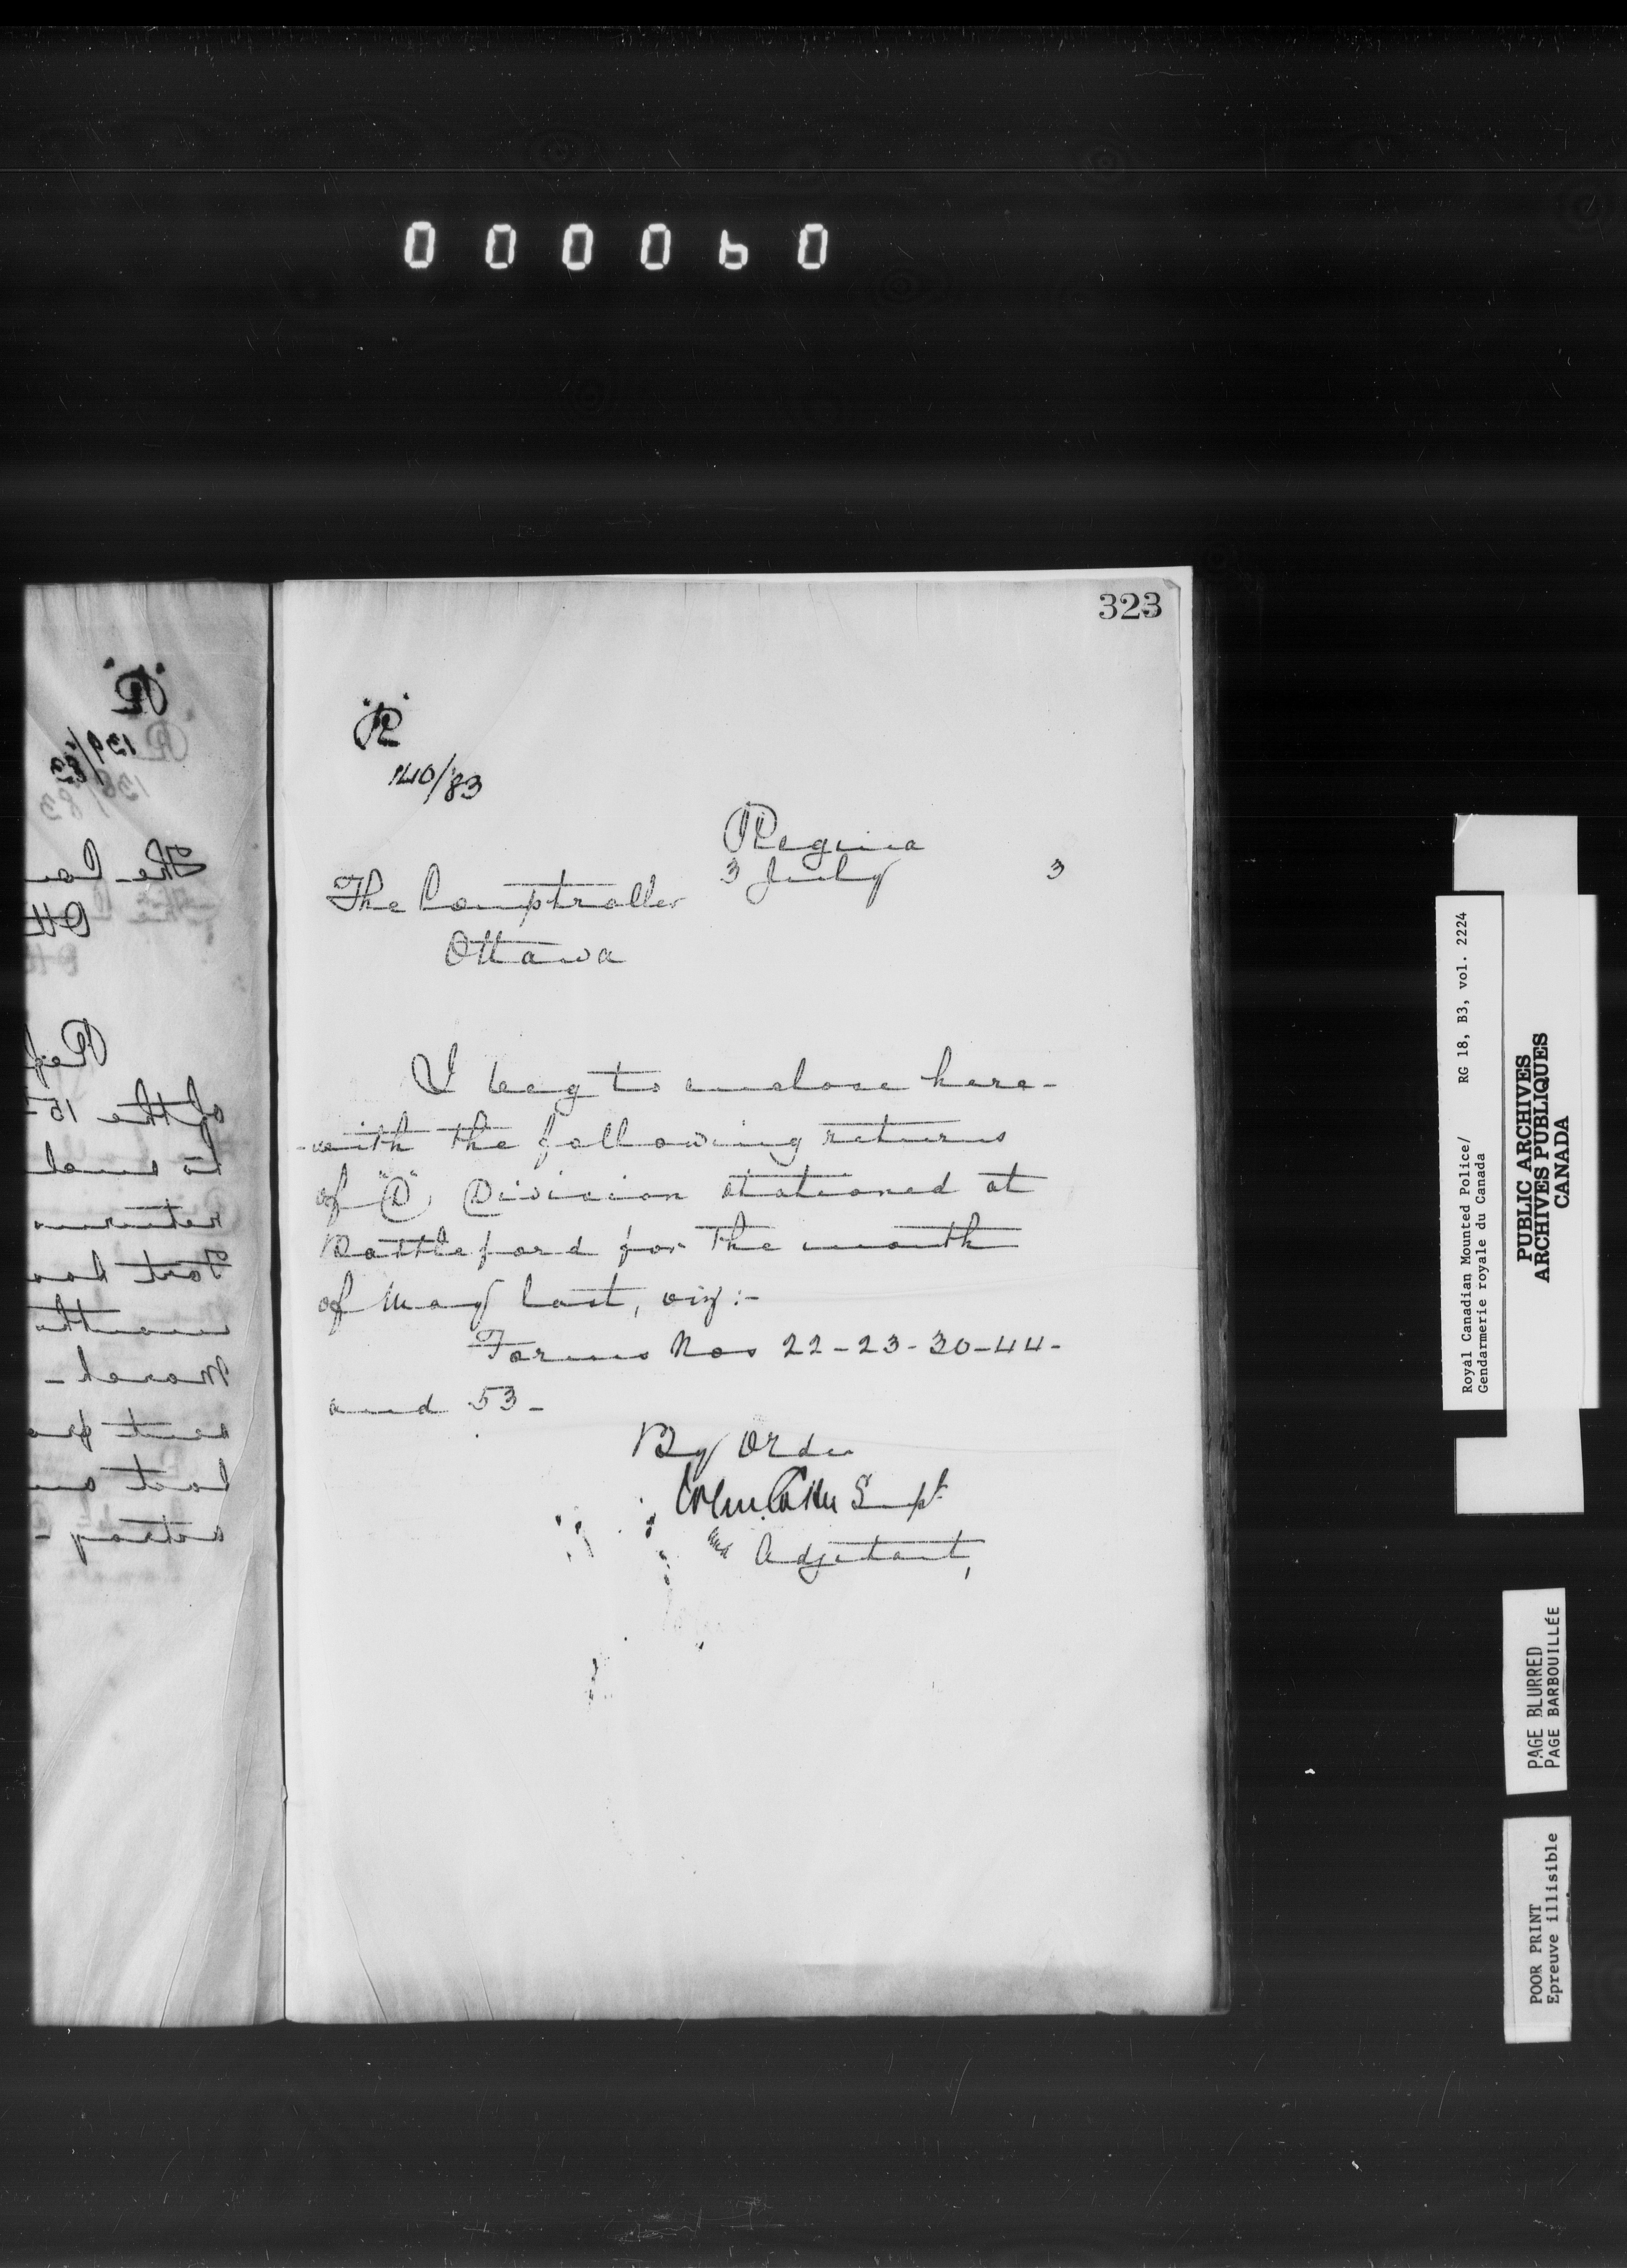 000060
323
"R"
140/83
Regina
3 July 3
The Comptroller
Ottawa
I beg to enclose here-
-with the following returns
of "D" Division stationed at
Battleford for the month
of May last, viz:-
Forms Nos 22-23-30-44-
and 53-
By Order
Supt
and Adjutant,
"R"
139/83
R
138/83
The Com
Ott
Ref
of the 15
to
returns
Fort
months
March -
sent
last
astray -
Royal Canadian Mounted Police/ RG 18, B3, vol. 2224
Gendarmerie royale du Canada
PUBLIC ARCHIVES
ARCHIVES PUBLIQUES
CANADA
PAGE BLURRED
PAGE BARBOUILLÉE
POOR PRINT
Epreuve illisible